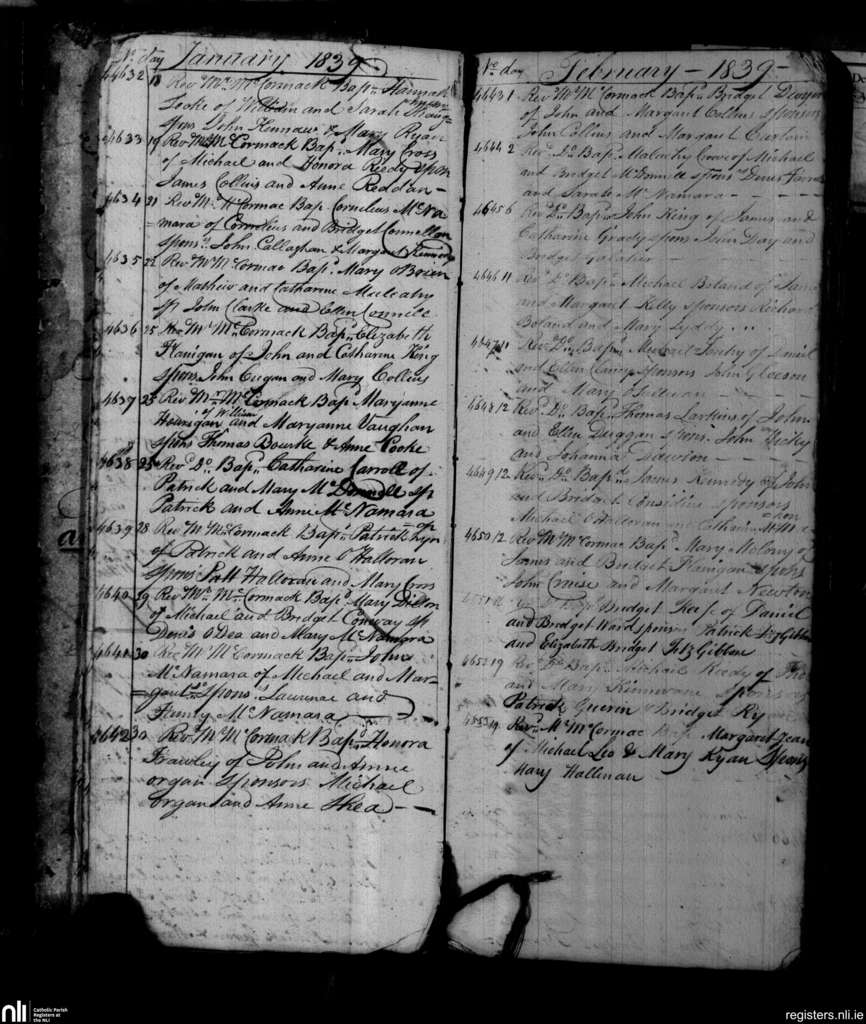 No. day January 1839
4463 2 18 Revd. Mr. McCormack Bapd. Hannah
Cooke of William and Sarah
spons John & Mary Ryan
4633 19 Revd. Mr. McCormack Bapd. Mary Cross
of Michael and Honora Reidy spon
James Collins and Anne Reddan -
4634 21 Revd. Mr. McCormac Bapd. Cornelius McNa
=mara of Cornelius and Bridget Connellon
spons. John Callaghan & Margaret Kennedy
4635 22 Revd. Mr. McCormac Bapd. Mary OBrien
of Mathew and Catharine Mulcahy
sp John Clarke and Ellen Connell
4636 25 Revd. Mr. McCormack Bapd. Elizabeth
Flanigan of John and Catharine King
spons John Cregan and Mary Collins
4637 25 Revd. Mr. McCormack Bapd. Maryanne
of William
Hourigan and Maryanne Vaughan
spons Thomas Bourke & Anne Cooke
4638 25 Revd. Do. Bapd. Catharine Carroll of
Patrick and Mary McDonnell sp
Patrick and Anne McNamara
4639 28 Revd. Mr. McCormack Bapd. Patrick Lyn
of Patrick and Anne O Halloran
spons Patt Halloran and Mary Cross
4640 29 Revd. Mr. McCormack Bapd. Mary Dillon
of Michael and Bridget Conway sp
Denis O Dea and Mary McNamara
4641 30 Revd. Mr. McCormack Bapd. John
McNamara of Michael and Mar-
=garet Do. spons. Laurence and
McNamara
4642 30 Revd. Mr. McCormack Bapd. Honora
Frawley of John and Anne
organ sponsors Michael
organ and Anne Shea -
No. day February - 1839 -
4643 1 Revd. Mr. McCormack Bapd. Bridget Dwyer
of John and Margaret Collins sponsors
John Collins and Margaret Curtain
4644 2 Revd. Do. Bapd. Malachy Crowe of Michael
and Bridget spons. Denis
and Sarah McNamara -
4645 6 Revd. Do. Bapd. John King of James and
Catharine Grady spons John Day and
Bridget
4646 11 Revd. Do. Bapd. Michael Boland of
and Margaret Kelly sponsors Richard
Boland and Mary Lyddy ...
4647 11 Revd. Do. Bapd. Michael of Daniel
and Ellen sponsors John Gleeson
and Mary Sullivan -
4648 12 Revd. Do. Bapd. Thomas Larkins of John
and Ellen Duggan spons. John
and Johanna Dawson -
4649 12 Revd. Do. Bapd. James Kennedy of John
and Bridget Considine sponsors
Michael O Halloran and Catharine
4650 12 Revd. Mr. McCormac Bapd. Mary Molony of
James and Bridget Flanigan spons
John Cruise and Margaret Newton
Bridget of Daniel
and Bridget Ward spons Patrick FitzGibbon
and Elizabeth Bridget Fitz Gibbon
4652 19 Revd. Do. Bapd. Michael Reedy of
and Mary sponsors
Patrick Guerin Bridget
4653 19 Revd. Mr. McCormac Bap. Margaret
of Michael Leo & Mary Ryan
Mary Hallinan
nli Catholic Parish
Registers at
the NLI
registers.nli.ie